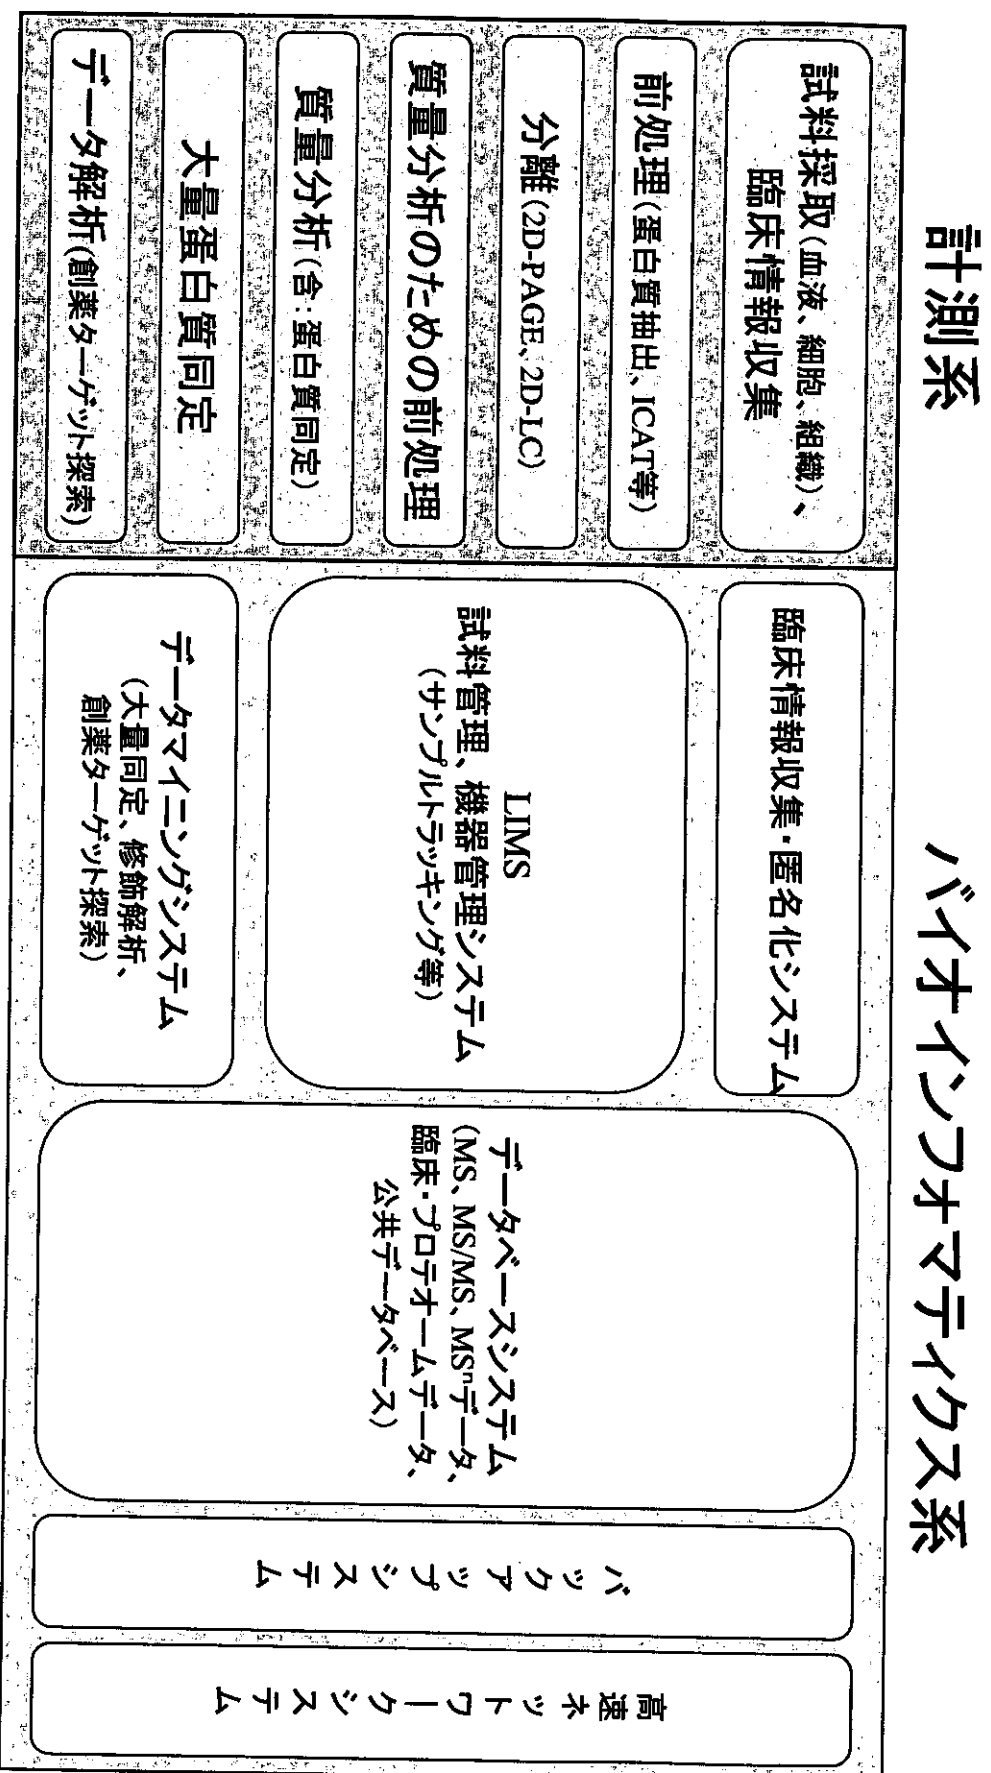 計測系
試料採取(血液、細胞、組織)、
臨床情報収集
前処理(蛋白質抽出、ICAT等)
分離(2D-PAGE、2D-LC)
質量分析のための前処理
質量分析(含:蛋白質同定)
大量蛋白質同定
データ解析(創薬ターゲット探索)
バイオインフォマティクス系
臨床情報収集・匿名化システム
LIMS
試料管理、機器管理システム
(サンプルトラッキング等)
データマイニングシステム
(大量同定、修飾解析、
創薬ターゲット探索)
データベースシステム
(MS、MS/MS、MSⁿデータ、
臨床・プロテオームデータ、
公共データベース)
バックアップシステム
高速ネットワークシステム